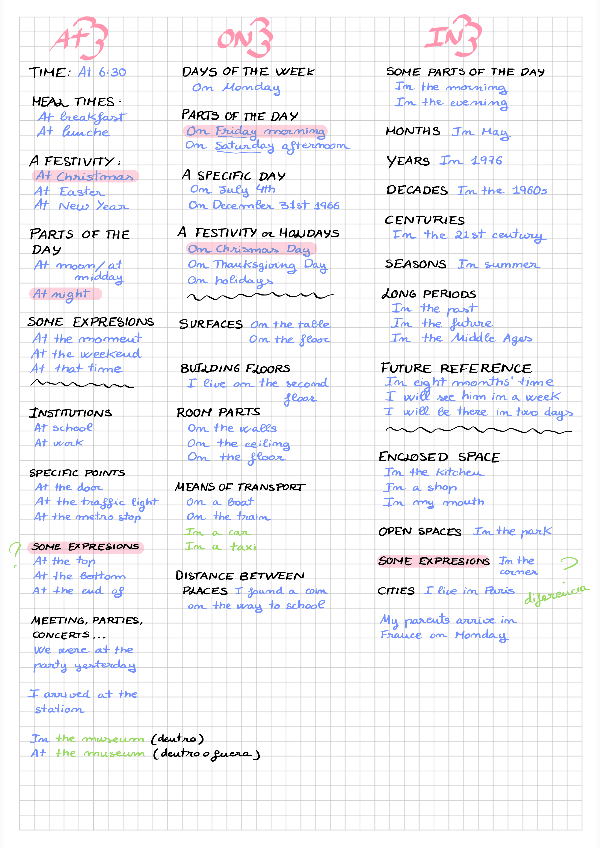 At
TIME: At 6:30
MEAL TIMES:
At breakfast
At lunche
A FESTIVITY:
At Christmas
At Easter
At New Year
PARTS OF THE
DAY
At noon/at
midday
At night
SOME EXPRESIONS
At the moment
At the weekend
At that time
INSTITUTIONS
At school
At work
SPECIFIC POINTS
At the door
At the traffic light
At the metro stop
? SOME EXPRESIONS
At the top
At the bottom
At the end of
MEETING, PARTIES,
CONCERTS...
We were at the
party yesterday
I arrived at the
station
In the museum (dentro)
At the museum (dentro o fuera)
ON
DAYS OF THE WEEK
On Monday
PARTS OF THE DAY
On Friday morning
On Saturday afternoon
A SPECIFIC DAY
On July 4th
On December 31st 1966
A FESTIVITY or HOLIDAYS
On Chrismas Day
On Thanksgiving Day
On holidays
SURFACES On the table
On the floor
BUILDING FLOORS
I live on the second
floor
ROOM PARTS
On the walls
On the ceiling
On the floor
MEANS OF TRANSPORT
On a boat
On the train
In a car
In a taxi
DISTANCE BETWEEN
PLACES I found a coin
on the way to school
IN
SOME PARTS OF THE DAY
In the morning
In the evening
MONTHS In May
YEARS In 1976
DECADES In the 1960s
CENTURIES
In the 21st century
SEASONS In summer
LONG PERIODS
In the past
In the future
In the Middle Ages
FUTURE REFERENCE
In eight months' time
I will see him in a week
I will be there in two days
ENCLOSED SPACE
In the kitchen
In a shop
In my mouth
OPEN SPACES In the park
SOME EXPRESIONS In the
corner
?
diferencia
CITIES I live in Paris
My parents arrive in
France on Monday